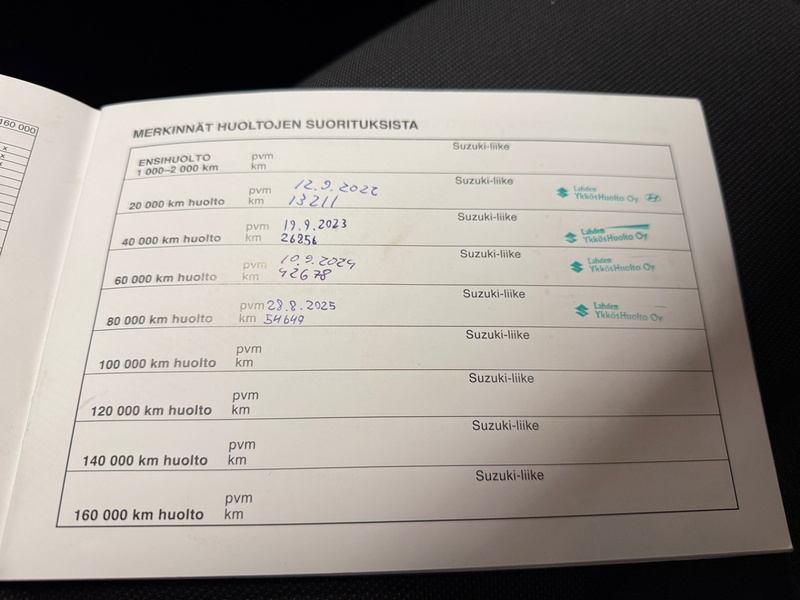 160 000
x
x
x
MERKINNÄT HUOLTOJEN SUORITUKSISTA
ENSIHUOLTO pvm Suzuki-liike
1 000–2 000 km km
pvm 12.9.2022 Suzuki-liike Lahden
20 000 km huolto km 13211 YkkösHuolto Oy
pvm 19.9.2023 Suzuki-liike Lahden
40 000 km huolto km 26856 YkkösHuolto Oy
pvm 10.9.2024 Suzuki-liike Lahden
60 000 km huolto km 42678 YkkösHuolto Oy
pvm 28.8.2025 Suzuki-liike Lahden
80 000 km huolto km 54649 YkkösHuolto Oy
pvm Suzuki-liike
100 000 km huolto km
pvm Suzuki-liike
120 000 km huolto km
pvm Suzuki-liike
140 000 km huolto km
pvm Suzuki-liike
160 000 km huolto km